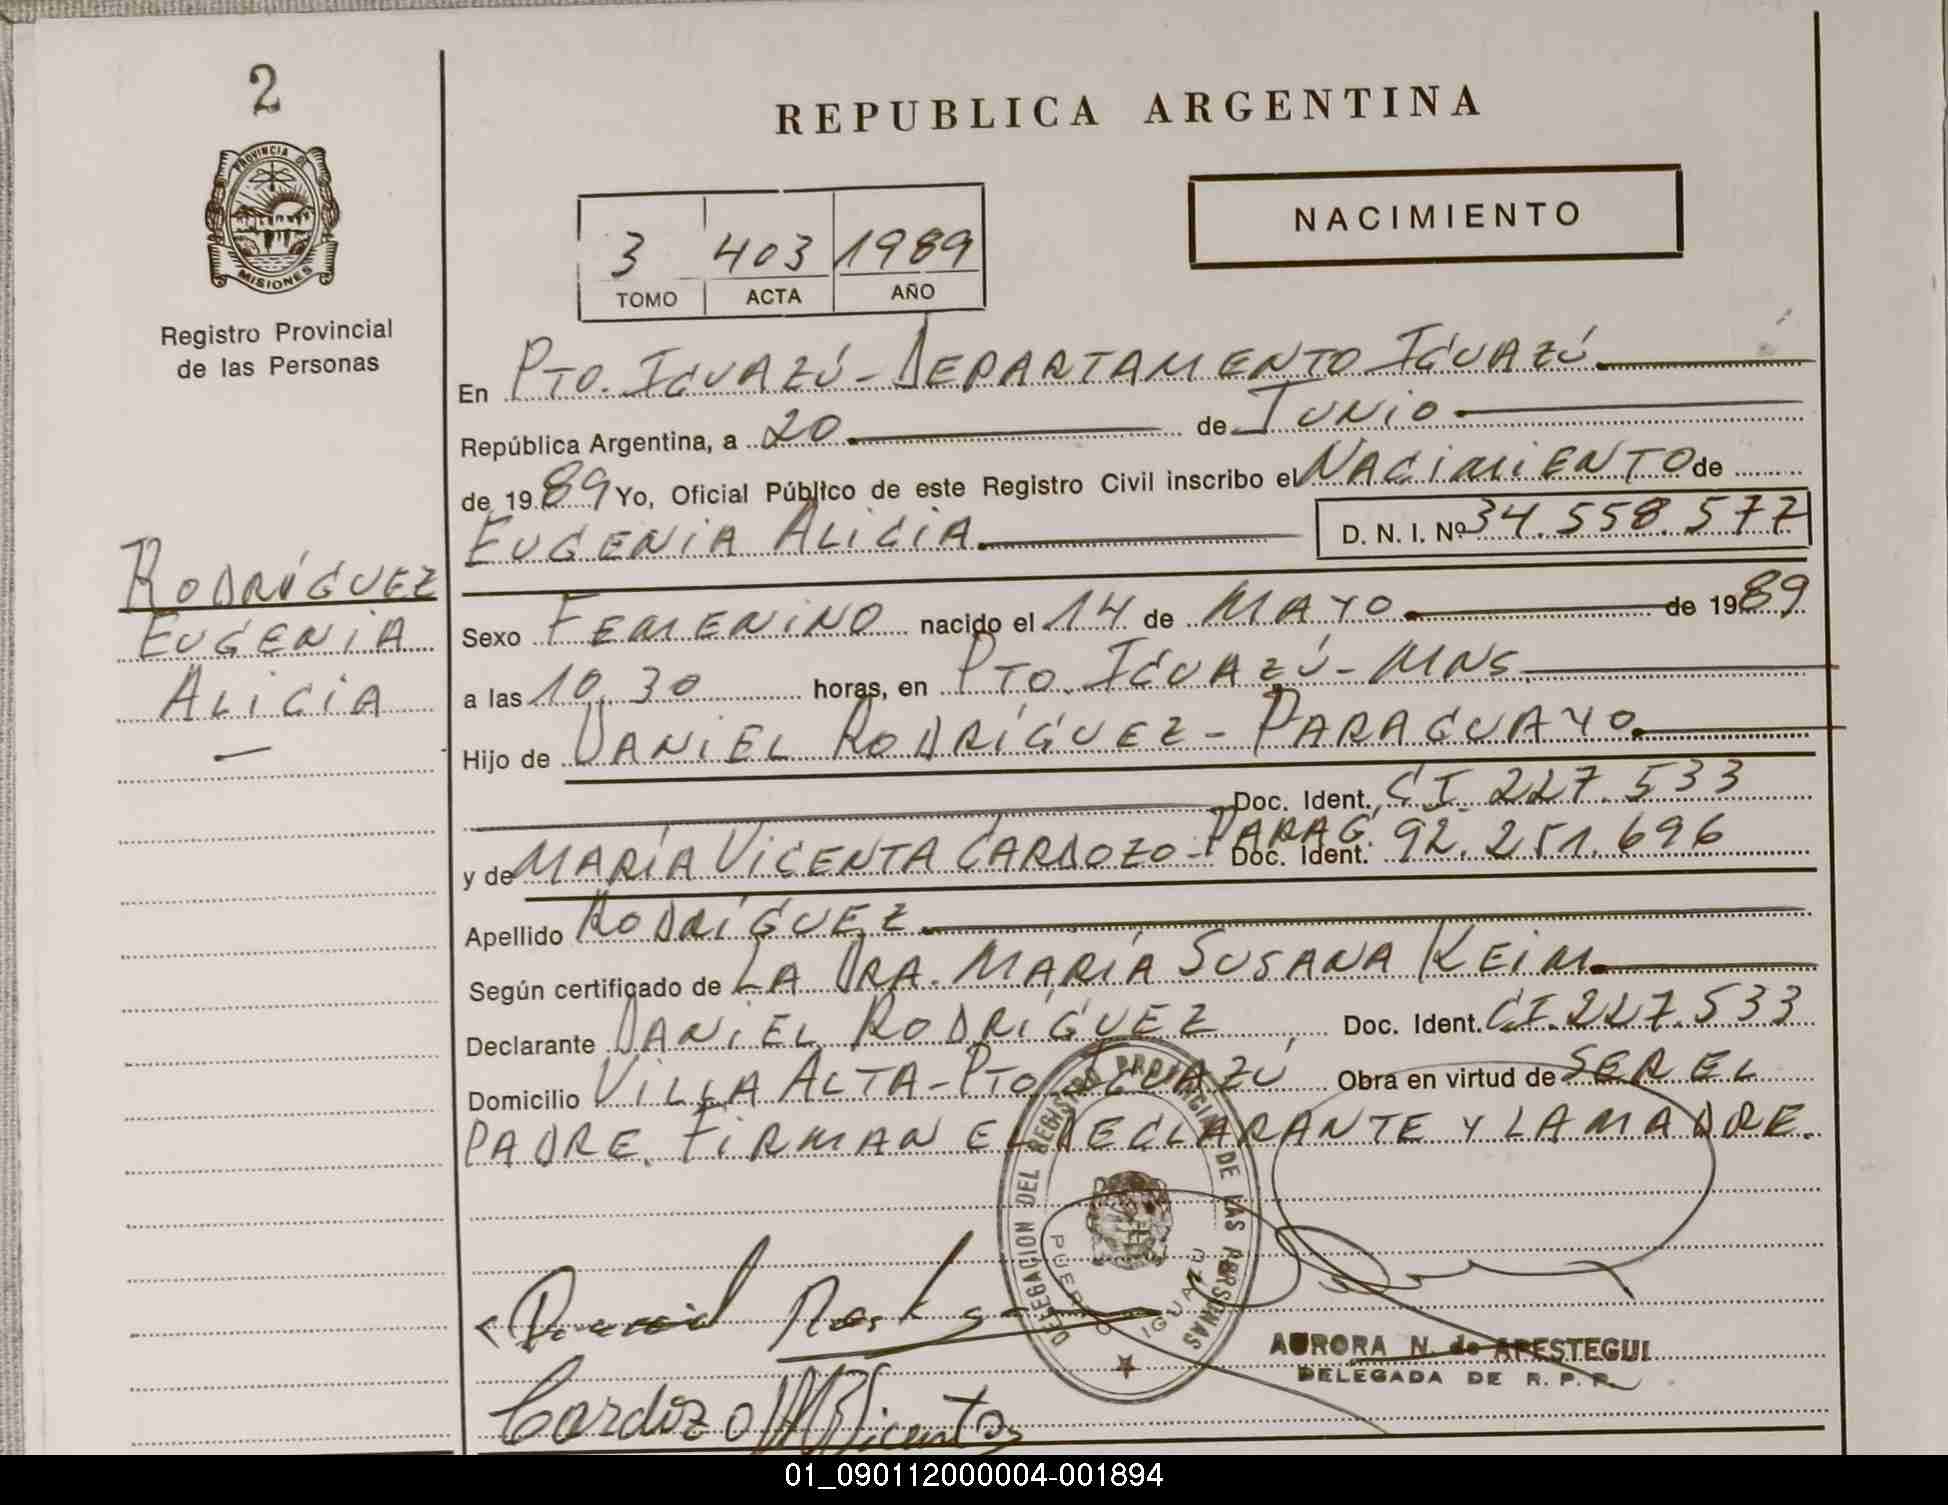 2
REPUBLICA ARGENTINA
PROVINCIA DE
MISIONES
Registro Provincial
de las Personas
NACIMIENTO
3 403 1989
TOMO ACTA AÑO
En PTO. IGUAZÚ - DEPARTAMENTO IGUAZÚ
República Argentina, a 20 de JUNIO
de 1989 Yo, Oficial Público de este Registro Civil inscribo el NACIMIENTO de
EUGENIA ALICIA D. N. I. Nº 34.558.577
RODRÍGUEZ
EUGENIA
ALICIA
Sexo FEMENINO nacido el 14 de MAYO de 1989
a las 10,30 horas, en PTO. IGUAZÚ - MNS.
Hijo de DANIEL RODRÍGUEZ - PARAGUAYO
Doc. Ident. CI. 227.533
y de MARÍA VICENTA CARDOZO - PARAG. Doc. Ident. 92.251.696
Apellido RODRÍGUEZ
Según certificado de LA DRA. MARÍA SUSANA KEIM
Declarante DANIEL RODRÍGUEZ Doc. Ident. CI. 227.533
Domicilio VILLA ALTA - PTO. IGUAZÚ Obra en virtud de SER EL
PADRE. FIRMAN EL DECLARANTE Y LA MADRE.
DELEGACION DEL REGISTRO PROVINCIAL DE LAS PERSONAS
PUERTO IGUAZU
AURORA N. de APESTEGUI
DELEGADA DE R. P. P.
Cardozo Vicenta
01_090112000004-001894